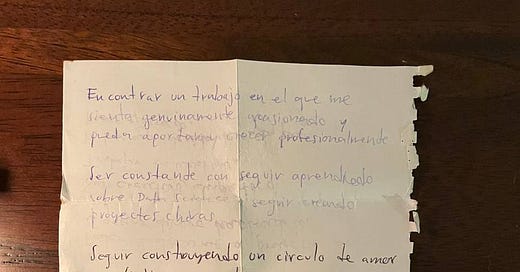 Encontrar un trabajo en el que me
sienta genuinamente y
pueda aportar crecer profesionalmente
Ser constante con seguir aprendiendo
sobre Data Science seguir creando
proyectos
Seguir construyendo un círculo de amor